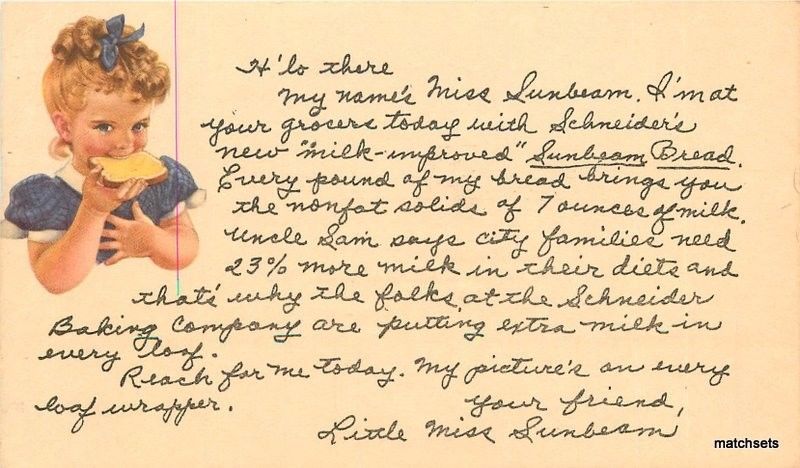 H'lo there
My name's Miss Sunbeam. I'm at
your grocers today with Schneider's
new "milk-improved" Sunbeam Bread.
Every pound of my bread brings you
the nonfat solids of 7 ounces of milk.
Uncle Sam says city families need
23% more milk in their diets and
that's why the folks at the Schneider
Baking Company are putting extra milk in
every loaf.
Reach for me today. My picture's on every
loaf wrapper.
your friend,
Little Miss Sunbeam
matchsets